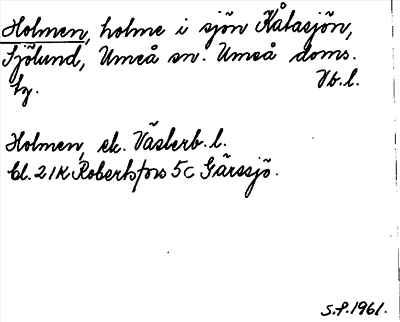 Holmen, holme i sjön Kåtasjön,
Sjölund, Umeå sn. Umeå doms.
hg. Vb.l.
Holmen, ek. Västerb.l.
bl. 21K Robertsfors 5c Gärssjö.
S.P.1961.